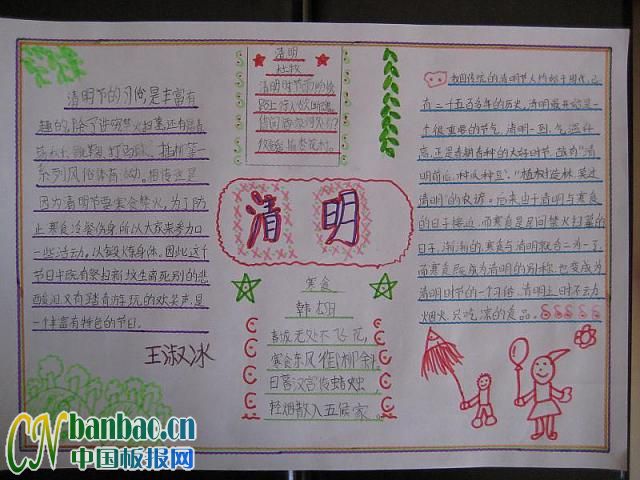 清明节的习俗是丰富有
趣的,除了讲究禁火扫墓,还有踏青
荡秋千、蹴鞠、打马球、插柳等一
系列风俗体育活动。相传这是
因为清明节要寒食禁火,为了防
止寒食冷餐伤身,所以大家来参加
一些活动,以锻炼身体。因此这个
节日中既有祭扫新坟生离死别的悲
酸泪,又有踏青游玩的欢笑声,是
一个丰富有特色的节日。
王淑冰
清明
杜牧
清明时节雨纷纷
路上行人欲断魂
借问酒家何处有
牧童遥指杏花村
清 明
寒食
韩翃
春城无处不飞花,
寒食东风御柳斜
日暮汉宫传蜡烛
轻烟散入五侯家
我国传统的清明节大约始于周代,已
有二千五百多年的历史,清明最开始是一
个很重要的节气,清明一到,气温升
高,正是春耕春种的大好时节,故有“清
明前后,种瓜种豆”。“植树造林,莫过
清明”的农谚。后来由于清明与寒食
的日子接近,而寒食是民间禁火扫墓的
日子,渐渐的,寒食与清明就合二为一了,
而寒食既成为清明的别称,也变成为
清明时节的一个习俗,清明之日不动
烟火,只吃凉的食品。
CN banbao.cn
中国板报网